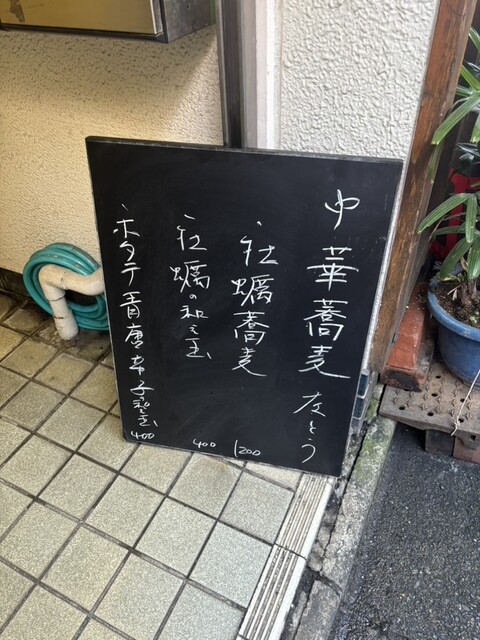 中華蕎麦 左とう
牡蠣蕎麦 1200
牡蠣の和え玉 400
ホタテ青唐辛子和え玉 400